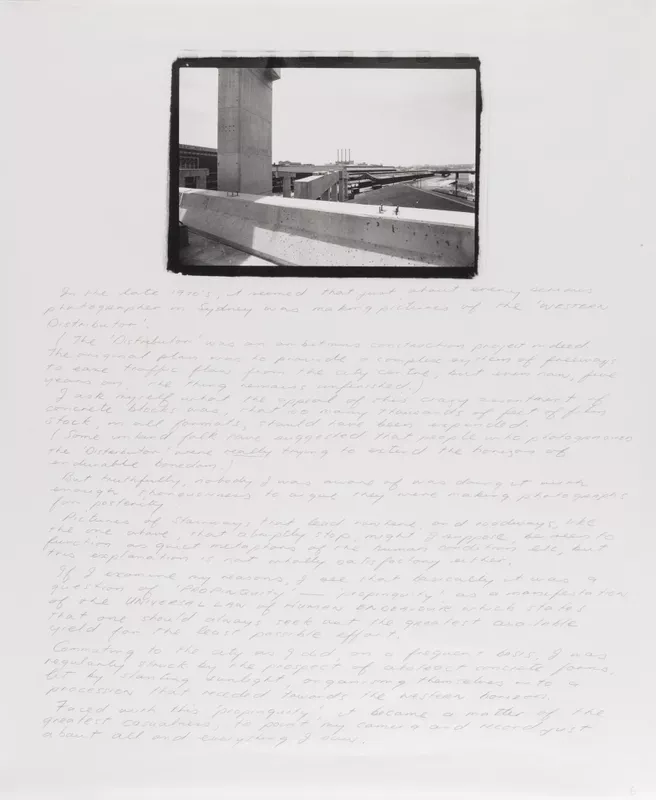 In the late 1970's, it seemed that just about every serious
photographer in Sydney was making pictures of the 'WESTERN
Distributor'.
(The 'Distributor' was an ambitious construction project indeed.
The original plan was to provide a complex system of freeways
to ease traffic flow from the city centre, but even now, five
years on, the thing remains unfinished.)
I ask myself what the appeal of this crazy assortment of
concrete blocks was, that so many thousands of feet of film
stock, in all formats, should have been expended.
(Some unkind folk have suggested that people who photographed
the 'Distributor' were really trying to extend the horizons of
endurable boredom.)
But truthfully, nobody I was aware of was doing it with
enough thoroughness to argue they were making photographs
for posterity.
Pictures of stairways that lead nowhere, and roadways, like
the one above, that abruptly stop, might I suppose, be seen to
function as quiet metaphors of the human condition etc, but
this explanation is not wholly satisfactory either.
If I examine my reasons, I see that basically it was a
question of 'PROPINQUITY' — 'propinquity' as a manifestation
of the UNIVERSAL LAW OF HUMAN ENDEAVOUR which states
that one should always seek out the greatest available
yield for the least possible effort.
Commuting to the city as I did, on a frequent basis, I was
regularly struck by the prospect of abstract concrete forms,
lit by slanting sunlight, organising themselves into a
procession that receded towards the western horizon.
Faced with this 'propinquity', it became a matter of the
greatest casualness, to point my camera and record just
about all and everything I saw.